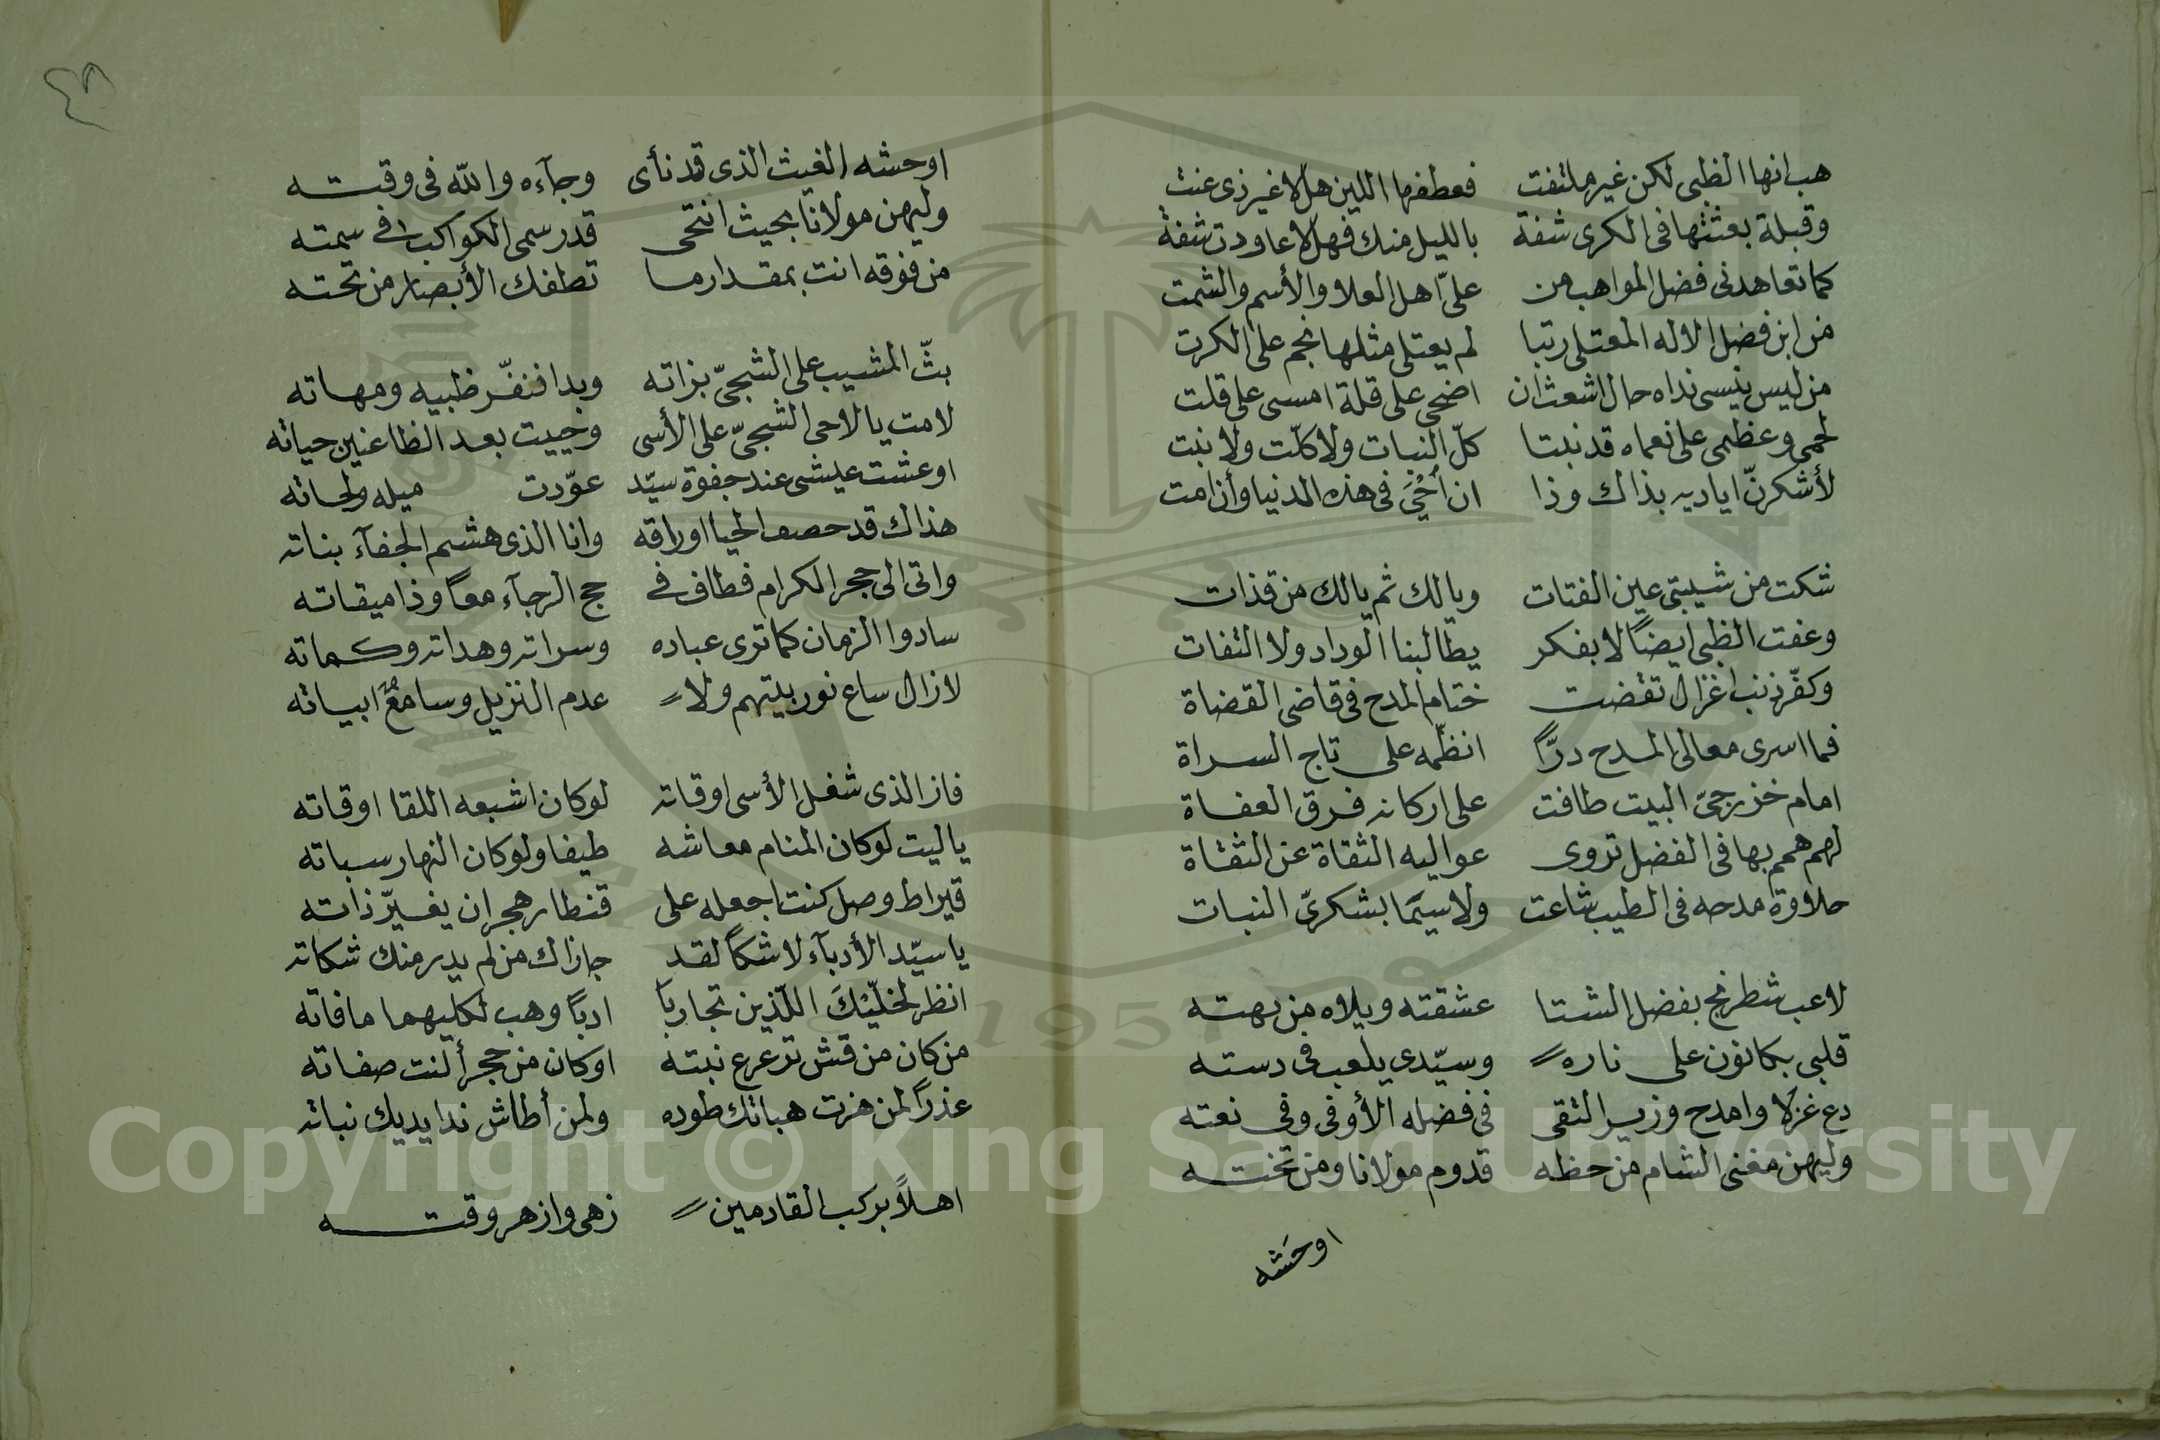 هب انها الظبى لكن غير ملتفت فعطفها اللين هلا غير ذى عنت
وقبلة بعثتها فى الكرى شفة بالليل منك فهلا عاودت شفة
كما تعاهدنى فضل المواهب من علىّ اهل العلا والأسم والشمت
من ابن فضل الاله المعتلى رتبا لم يعتلى مثلها نجم على الكرت
من ليس ينسى نداه حال اشعث ان اضحى على قلة امسى على قلت
لحمى وعظمى على نعماه قد نبتا كلّ النبات ولا كلّت ولا بنت
لأشكرنّ اياديه بذاك وذا ان أحْيَ فى هذه الدنيا وأن امت
شكت من شيبتى عين الفتات ويالك ثم يالك من قذات
وعفت الظبى ايضًا لا بفكر يطالبنا الوداد ولا التفات
وكفّر ذنب اغزال تقضت ختام المدح فى قاضى القضاة
فما اسرى معالى المدح درًّا انظّمه على تاج السراة
امام خزرجىّ البيت طافت على اركانه فرق العفاة
لهم همم بها فى الفضل تروى عواليه الثقاة عن الثقاة
حلاوة مدحه فى الطيب شاعت ولا سيّما بشكرىّ النبات
لاعب شطرنج بفضل الشتا عشقته ويلاه من بهته
قلبى بكانون على ناره وسيّدى يلعب فى دسته
دع غزلا وامدح وزير التقى فى فضله الأوفى وفى نعته
وليهن مغنى الشام من حظه قدوم مولانا ومن تخته
اوحشه
٤٨
اوحشه الغيث الذى قد نأى وجآءه والله فى وقته
وليهن مولانا بحيث انتحى قدر سمى الكواكب فى سمته
من فوقه انت بمقدار ما تطفك الأبصار من تحته
بثّ المشيب على الشجىّ بزاته وبدا فنفّر ظبيه ومهاته
لامت يا لاحى الشجىّ على الأسى وحييت بعد الظاعنين حياته
او عشت عيشى عند جفوة سيّد عوّدت ميله ولحاته
هذاك قد حصف الحيا اوراقه وانا الذى هشم الجفآء بناته
واتى الى حجر الكرام فطاف فى حج الرجآء معًا وذا ميقاته
سادوا الزمان كما ترى عباده وسراته وهداته وكماته
لا زال ساع نور بيتهم ولا عدم النزيل وسامعٌ ابياته
فاز الذى شغل الأسى اوقاته لو كان اشبعه اللقا اوقاته
يا ليت لو كان المنام معاشه طيفا ولو كان النهار سباته
قيراط وصل كنت اجعله على قنطار هجر ان يغيّر ذاته
يا سيّد الأدبآء لا شكًا لقد جازاك من لم يدر منك شكاته
انظر لخلّيْكَ اللّذين تجاربا ادبًا وهب لكليهما ما فاته
من كان من قش ترعرع نبته او كان من حجر ألنت صفاته
عذرًا لمن هزت هباتك طوده ولمن أطاش ندا يديك نباته
اهلاً بركب القادمين زهى وازهر وقته